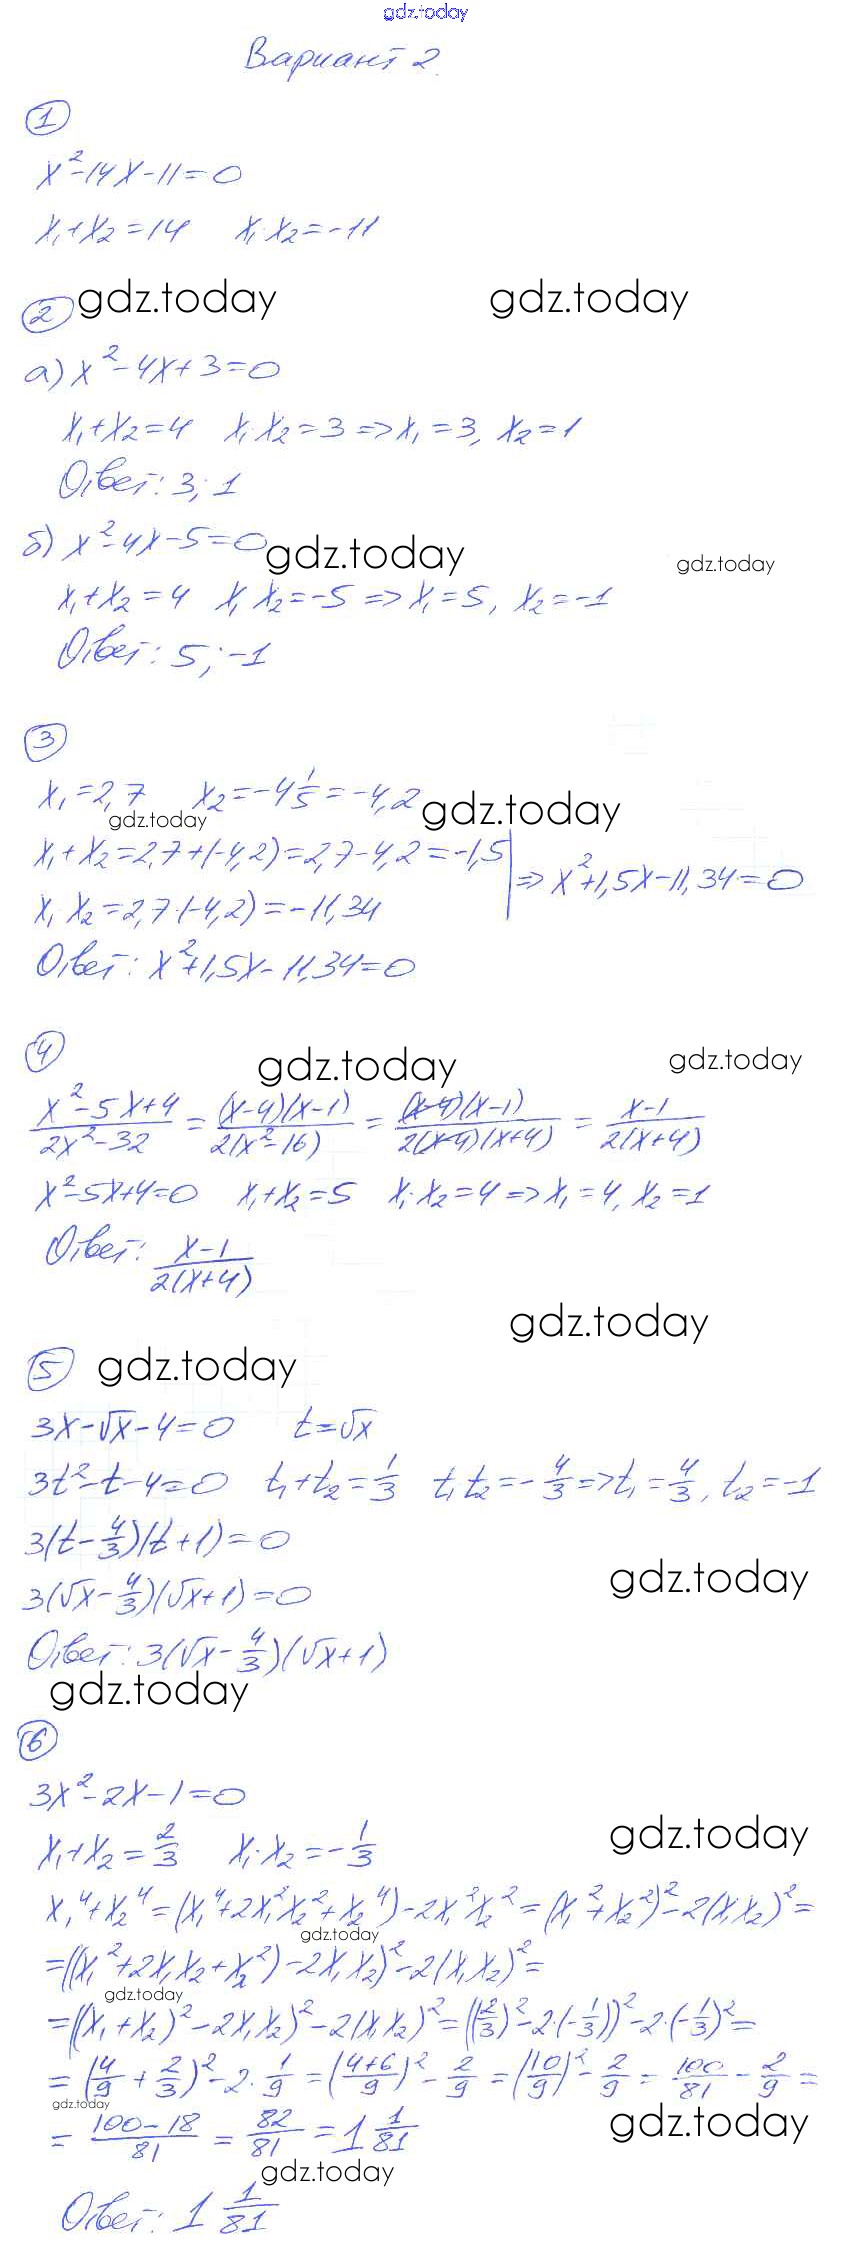 gdz.today
Вариант 2.
1
x²-14x-11=0
x₁+x₂=14 x₁·x₂=-11
2 gdz.today gdz.today
а) x²-4x+3=0
x₁+x₂=4 x₁·x₂=3 => x₁=3, x₂=1
Ответ: 3; 1
б) x²-4x-5=0 gdz.today gdz.today
x₁+x₂=4 x₁ x₂=-5 => x₁=5, x₂=-1
Ответ: 5; -1
3
x₁=2,7 x₂=-4 1/5=-4,2 gdz.today
gdz.today
x₁+x₂=2,7+(-4,2)=2,7-4,2=-1,5
=> x²+1,5x-11,34=0
x₁ x₂=2,7·(-4,2)=-11,34
Ответ: x²+1,5x-11,34=0
4 gdz.today gdz.today
(x²-5x+4)/(2x²-32) = ((x-4)(x-1))/(2(x²-16)) = ((x-4)(x-1))/(2(x-4)(x+4)) = (x-1)/(2(x+4))
x²-5x+4=0 x₁+x₂=5 x₁·x₂=4 => x₁=4, x₂=1
Ответ: (x-1)/(2(x+4))
gdz.today
5 gdz.today
3x-√x-4=0 t=√x
3t²-t-4=0 t₁+t₂=1/3 t₁ t₂=-4/3 => t₁=4/3, t₂=-1
3(t-4/3)(t+1)=0
3(√x-4/3)(√x+1)=0 gdz.today
Ответ: 3(√x-4/3)(√x+1)
gdz.today
6
3x²-2x-1=0
x₁+x₂=2/3 x₁·x₂=-1/3 gdz.today
x₁⁴+x₂⁴=(x₁⁴+2x₁²x₂²+x₂⁴)-2x₁²x₂²=(x₁²+x₂²)²-2(x₁x₂)²=
gdz.today
=((x₁²+2x₁x₂+x₂²)-2x₁x₂)²-2(x₁x₂)²=
gdz.today
=((x₁+x₂)²-2x₁x₂)²-2(x₁x₂)²=((2/3)²-2·(-1/3))²-2·(-1/3)²=
=(4/9+2/3)²-2·1/9=((4+6)/9)²-2/9=(10/9)²-2/9=100/81-2/9=
gdz.today
=(100-18)/81=82/81=1 1/81 gdz.today
gdz.today
Ответ: 1 1/81